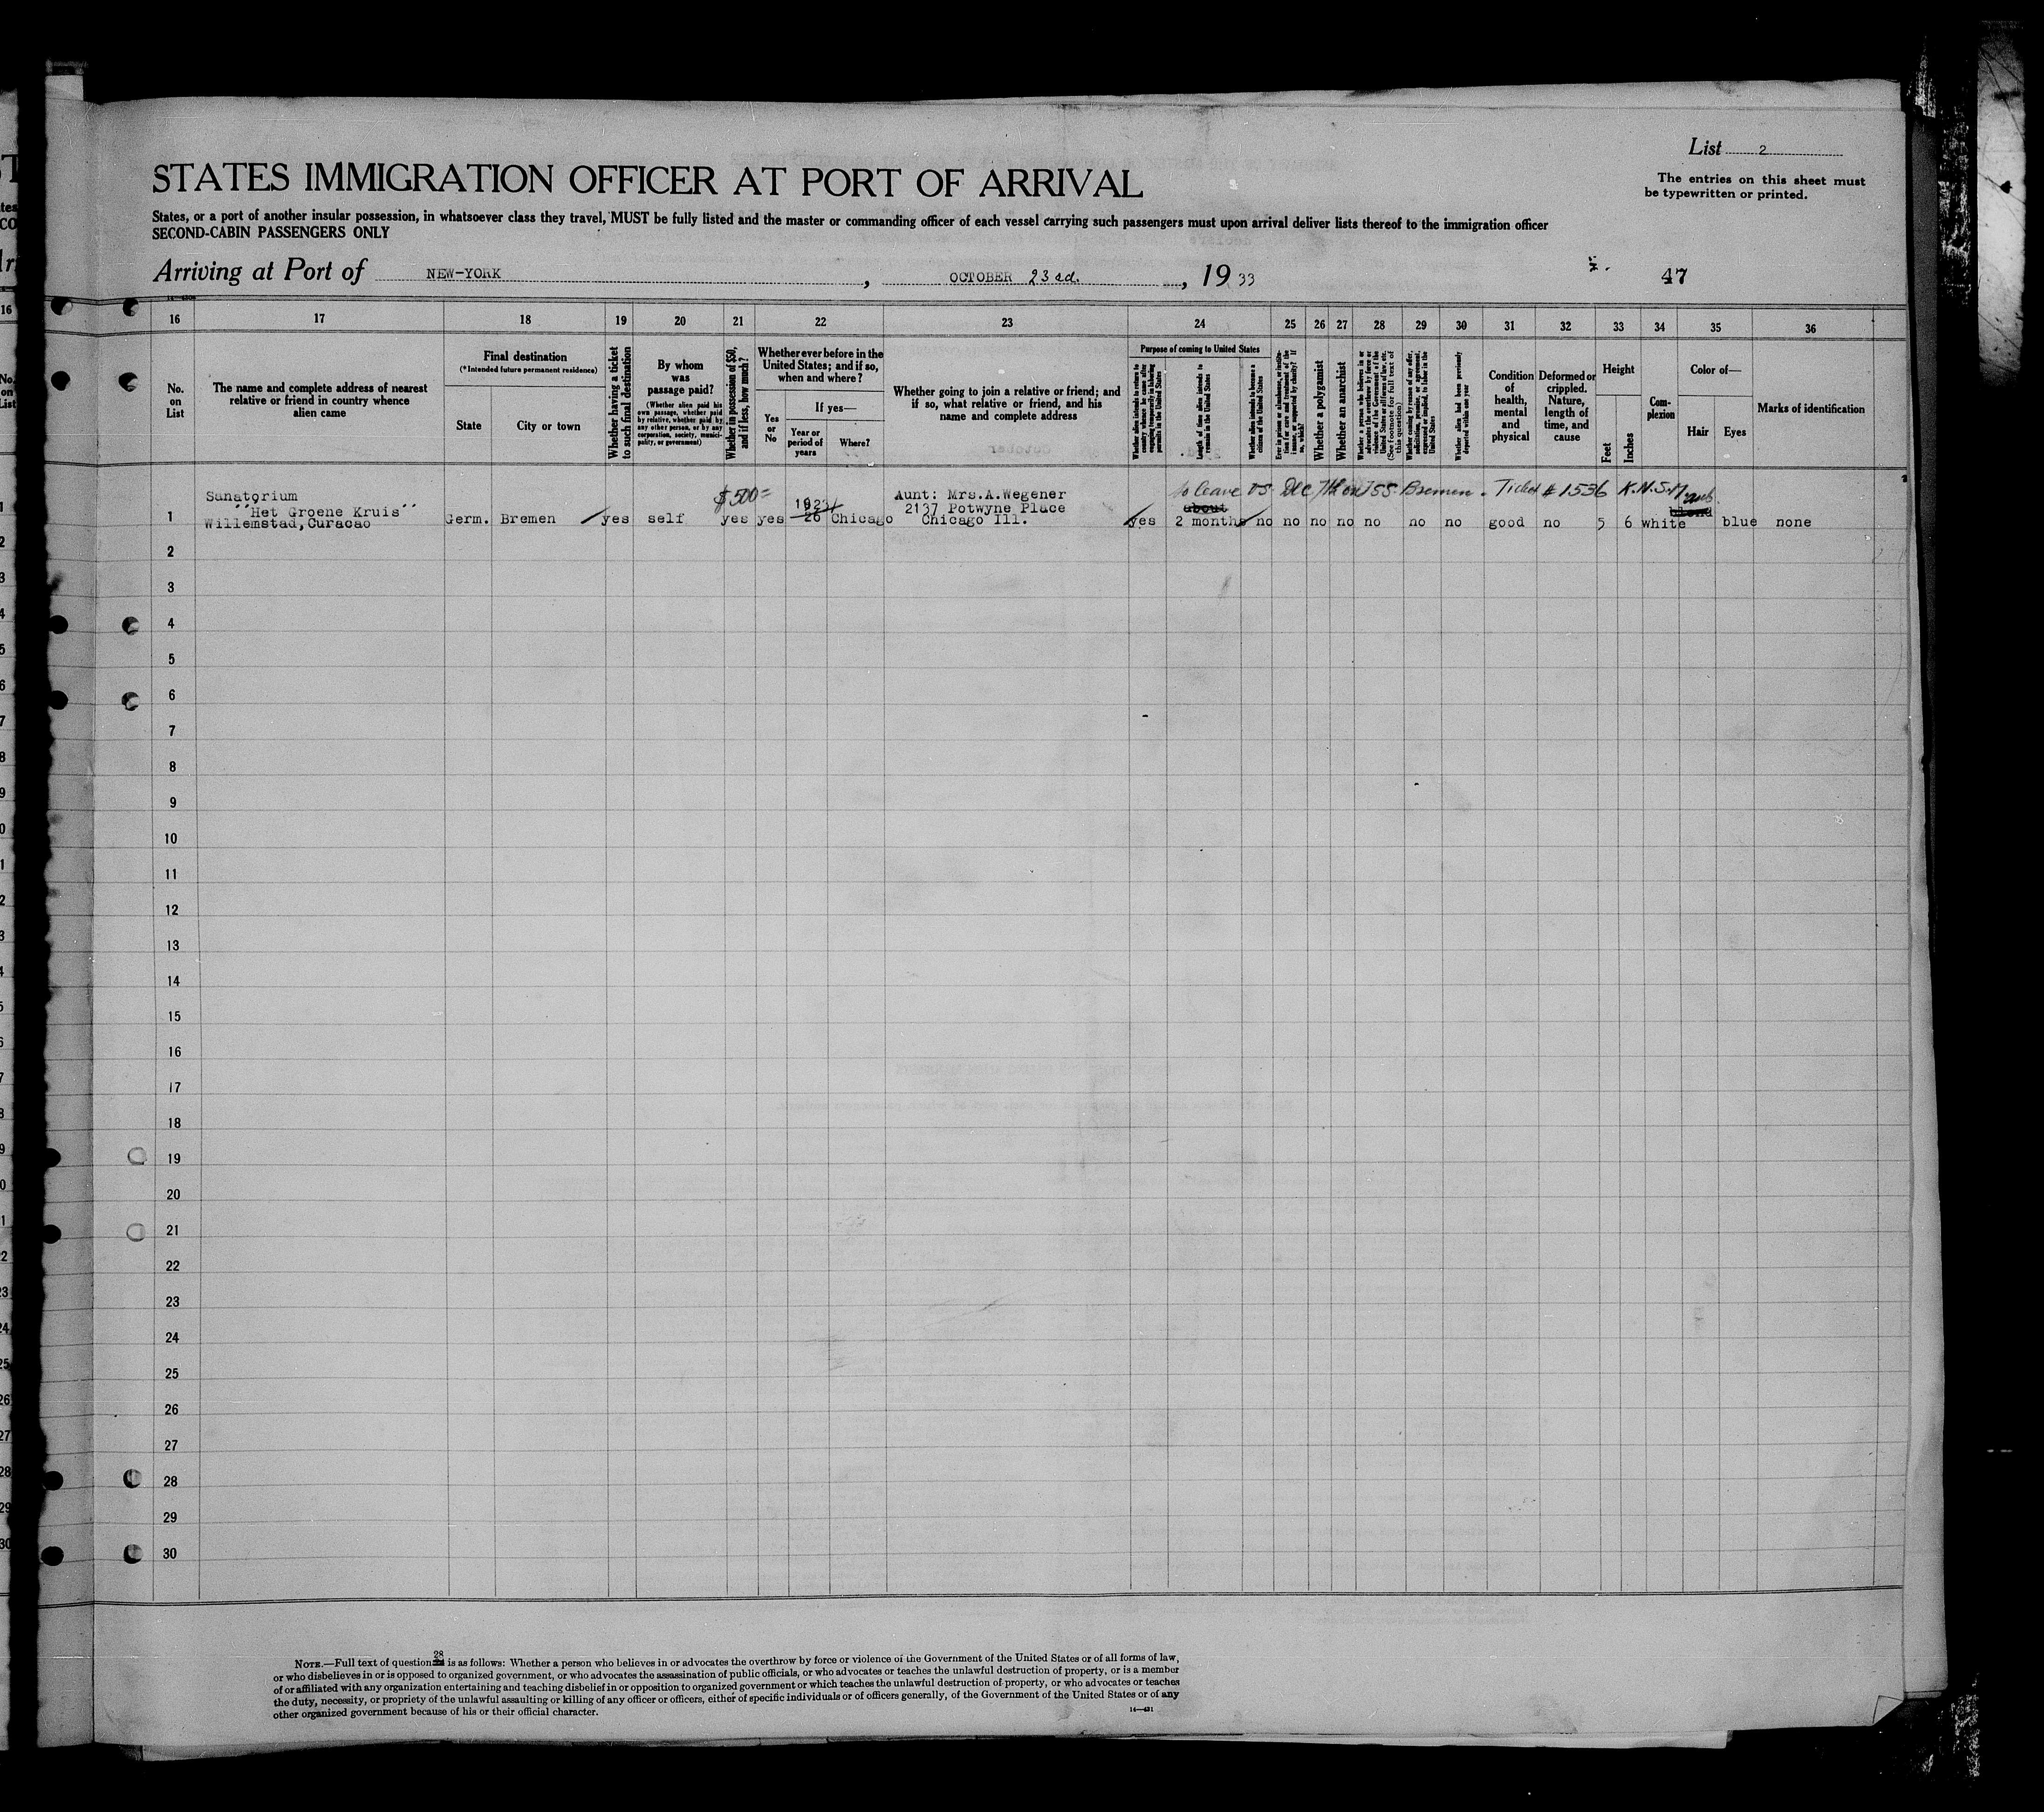 List 2
The entries on this sheet must
be typewritten or printed.
STATES IMMIGRATION OFFICER AT PORT OF ARRIVAL
States, or a port of another insular possession, in whatsoever class they travel, MUST be fully listed and the master or commanding officer of each vessel carrying such passengers must upon arrival deliver lists thereof to the immigration officer
SECOND-CABIN PASSENGERS ONLY
Arriving at Port of NEW-YORK, OCTOBER 23 rd., 19 33
47
16 17 18 19 20 21 22 23 24 25 26 27 28 29 30 31 32 33 34 35 36
No. on List
The name and complete address of nearest
relative or friend in country whence
alien came
Final destination
(*Intended future permanent residence)
State
City or town
Whether having a ticket
to such final destination
By whom
was
passage paid?
(Whether alien paid his
own passage, whether paid
by relative, whether paid by
any other person, or by any
corporation, society, munici-
pality, or government)
Whether in possession of $50,
and if less, how much?
Whether ever before in the
United States; and if so,
when and where?
Yes or No
If yes—
Year or
period of
years
Where?
Whether going to join a relative or friend; and
if so, what relative or friend, and his
name and complete address
Purpose of coming to United States
Length of time alien intends to
remain in the United States
Whether alien intends to become a
citizen of the United States
Whether a polygamist
Whether an anarchist
Whether alien had been previously
deported within one year
Condition
of
health,
mental
and
physical
Deformed or
crippled.
Nature,
length of
time, and
cause
Height
Feet
Inches
Com-
plexion
Color of—
Hair
Eyes
Marks of identification
$500= to leave US Dec 7th on SS Bremen. Ticket # 1536 K.N.S.M
Sanatorium
''Het Groene Kruis''
Willemstad, Curacao
1 Germ. Bremen yes self yes yes 1923/ 26 Chicago
Aunt: Mrs.A.Wegener
2137 Potwyne Place
Chicago Ill.
about
yes 2 months no no no no no no no good no 5 6 white blond blue none
2
3
4
5
6
7
8
9
10
11
12
13
14
15
16
17
18
19
20
21
22
23
24
25
26
27
28
29
30
NOTE.—Full text of question 28 is as follows: Whether a person who believes in or advocates the overthrow by force or violence of the Government of the United States or of all forms of law,
or who disbelieves in or is opposed to organized government, or who advocates the assassination of public officials, or who advocates or teaches the unlawful destruction of property, or is a member
of or affiliated with any organization entertaining and teaching disbelief in or opposition to organized government or which teaches the unlawful destruction of property, or who advocates or teaches
the duty, necessity, or propriety of the unlawful assaulting or killing of any officer or officers, either of specific individuals or of officers generally, of the Government of the United States or of any
other organized government because of his or their official character.
14—431